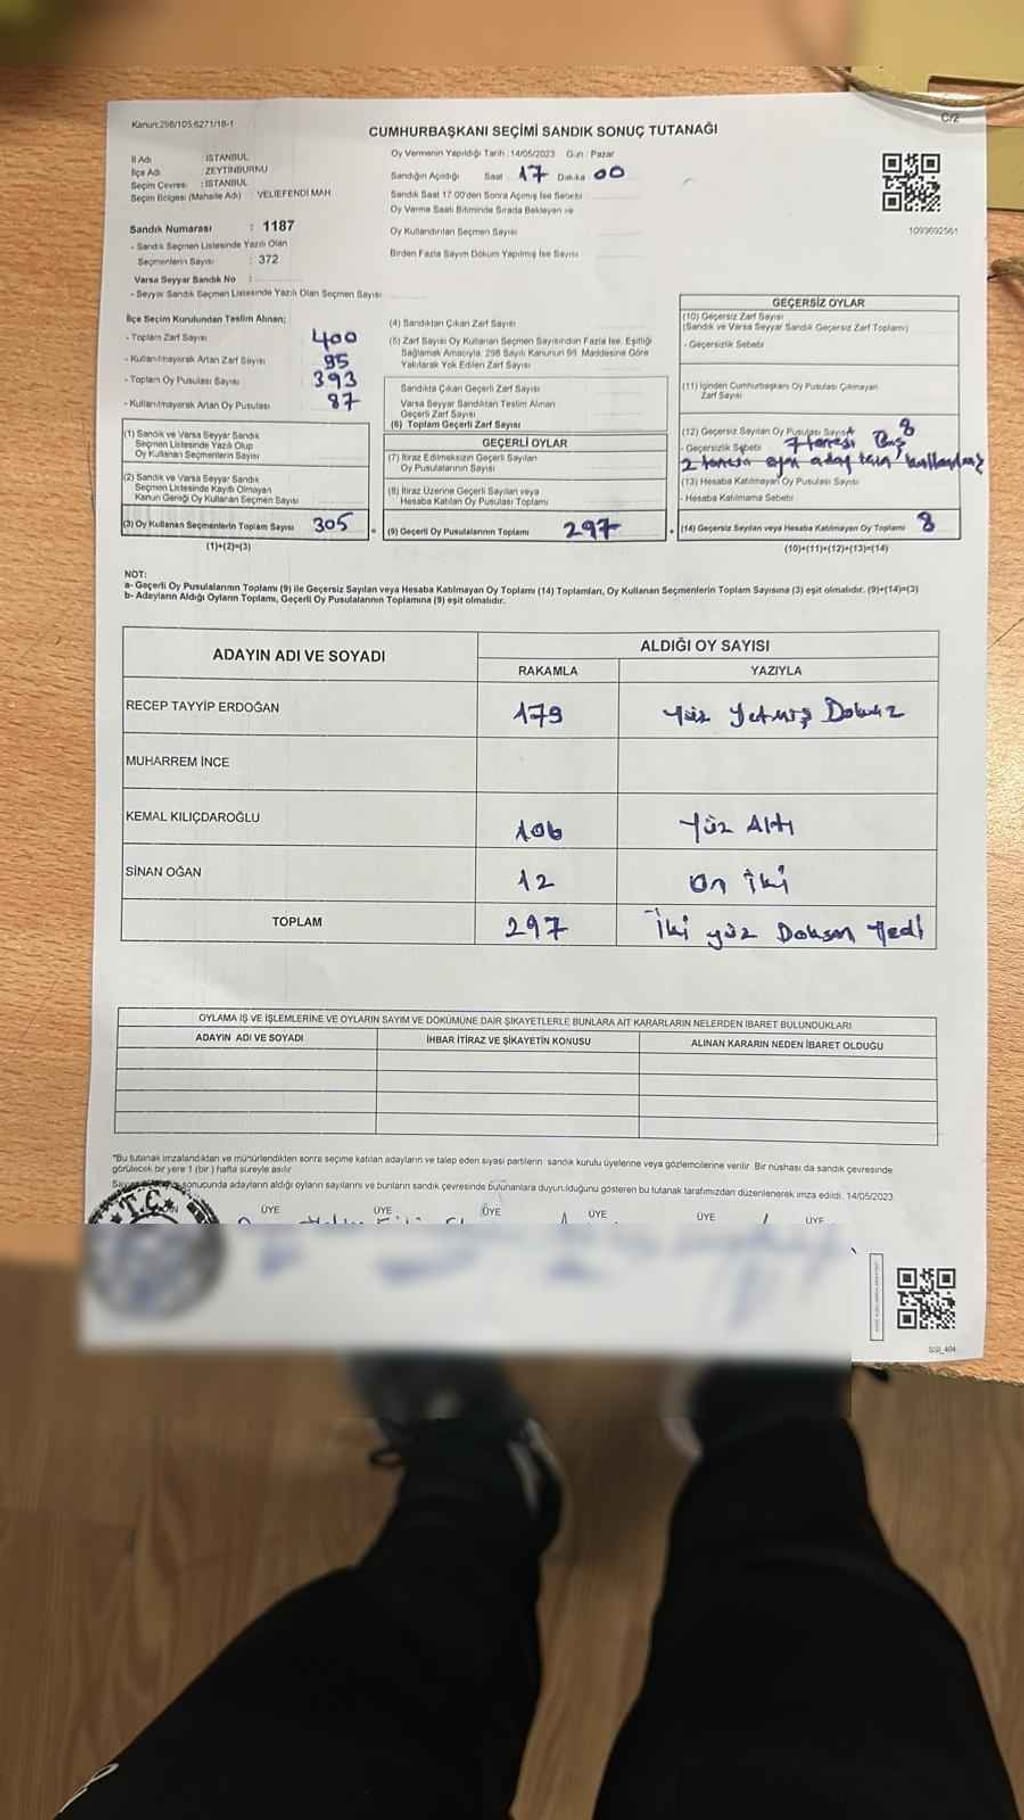 Kanun:298/105.6271/18-1
C/2
CUMHURBAŞKANI SEÇİMİ SANDIK SONUÇ TUTANAĞI
İl Adı : İSTANBUL
İlçe Adı : ZEYTİNBURNU
Seçim Çevresi : İSTANBUL
Seçim Bölgesi (Mahalle Adı) : VELİEFENDİ MAH.
Sandık Numarası : 1187
- Sandık Seçmen Listesinde Yazılı Olan
Seçmenlerin Sayısı : 372
Varsa Seyyar Sandık No :
- Seyyar Sandık Seçmen Listesinde Yazılı Olan Seçmen Sayısı
Oy Vermenin Yapıldığı Tarih : 14/05/2023 Gün : Pazar
Sandığın Açıldığı Saat 17 Dakika 00
Sandık Saat 17.00'den Sonra Açılmış İse Sebebi
Oy Verme Saati Bitiminde Sırada Bekleyen ve
Oy Kullandırılan Seçmen Sayısı
Birden Fazla Sayım Döküm Yapılmış İse Sayısı
1093692561
İlçe Seçim Kurulundan Teslim Alınan;
- Toplam Zarf Sayısı 400
- Kullanılmayarak Artan Zarf Sayısı 95
- Toplam Oy Pusulası Sayısı 393
- Kullanılmayarak Artan Oy Pusulası 87
(1) Sandık ve Varsa Seyyar Sandık
Seçmen Listesinde Yazılı Olup
Oy Kullanan Seçmenlerin Sayısı
(2) Sandık ve Varsa Seyyar Sandık
Seçmen Listesinde Kayıtlı Olmayan
Kanun Gereği Oy Kullanan Seçmen Sayısı
(3) Oy Kullanan Seçmenlerin Toplam Sayısı 305
(1)+(2)=(3)
(4) Sandıktan Çıkan Zarf Sayısı
(5) Zarf Sayısı Oy Kullanan Seçmen Sayısından Fazla İse, Eşitliği
Sağlamak Amacıyla, 298 Sayılı Kanunun 98. Maddesine Göre
Yakılarak Yok Edilen Zarf Sayısı
Sandıkta Çıkan Geçerli Zarf Sayısı
Varsa Seyyar Sandıktan Teslim Alınan
Geçerli Zarf Sayısı
(6) Toplam Geçerli Zarf Sayısı
GEÇERLİ OYLAR
(7) İtiraz Edilmeksizin Geçerli Sayılan
Oy Pusulalarının Sayısı
(8) İtiraz Üzerine Geçerli Sayılan veya
Hesaba Katılan Oy Pusulası Toplamı
= (9) Geçerli Oy Pusulalarının Toplamı 297
GEÇERSİZ OYLAR
(10) Geçersiz Zarf Sayısı
(Sandık ve Varsa Seyyar Sandık Geçersiz Zarf Toplamı)
- Geçersizlik Sebebi
(11) İçinden Cumhurbaşkanı Oy Pusulası Çıkmayan
Zarf Sayısı
(12) Geçersiz Sayılan Oy Pusulası Sayısı 8
- Geçersizlik Sebebi 7 tanesi Boş
2 tanesi
(13) Hesaba Katılmayan Oy Pusulası Sayısı
- Hesaba Katılmama Sebebi
+ (14) Geçersiz Sayılan veya Hesaba Katılmayan Oy Toplamı 8
(10)+(11)+(12)+(13)=(14)
NOT:
a- Geçerli Oy Pusulalarının Toplamı (9) ile Geçersiz Sayılan veya Hesaba Katılmayan Oy Toplamı (14) Toplamları, Oy Kullanan Seçmenlerin Toplam Sayısına (3) eşit olmalıdır. (9)+(14)=(3)
b- Adayların Aldığı Oyların Toplamı, Geçerli Oy Pusulalarının Toplamına (9) eşit olmalıdır.
ADAYIN ADI VE SOYADI
ALDIĞI OY SAYISI
RAKAMLA YAZIYLA
RECEP TAYYİP ERDOĞAN 179 Yüz Yetmiş Dokuz
MUHARREM İNCE
KEMAL KILIÇDAROĞLU 106 Yüz Altı
SİNAN OĞAN 12 On iki
TOPLAM 297 İki yüz Doksan Yedi
OYLAMA İŞ VE İŞLEMLERİNE VE OYLARIN SAYIM VE DÖKÜMÜNE DAİR ŞİKAYETLERLE BUNLARA AİT KARARLARIN NELERDEN İBARET BULUNDUKLARI
ADAYIN ADI VE SOYADI İHBAR İTİRAZ VE ŞİKAYETİN KONUSU ALINAN KARARIN NEDEN İBARET OLDUĞU
*Bu tutanak imzalandıktan ve mühürlendikten sonra seçime katılan adayların ve talep eden siyasi partilerin sandık kurulu üyelerine veya gözlemcilerine verilir. Bir nüshası da sandık çevresinde
görülecek bir yere 1 (bir) hafta süreyle asılır.
sonucunda adayların aldığı oyların sayılarını ve bunların sandık çevresinde bulunanlara duyurulduğunu gösteren bu tutanak tarafımızdan düzenlenerek imza edildi. 14/05/2023
T.C.
ÜYE ÜYE ÜYE ÜYE ÜYE ÜYE